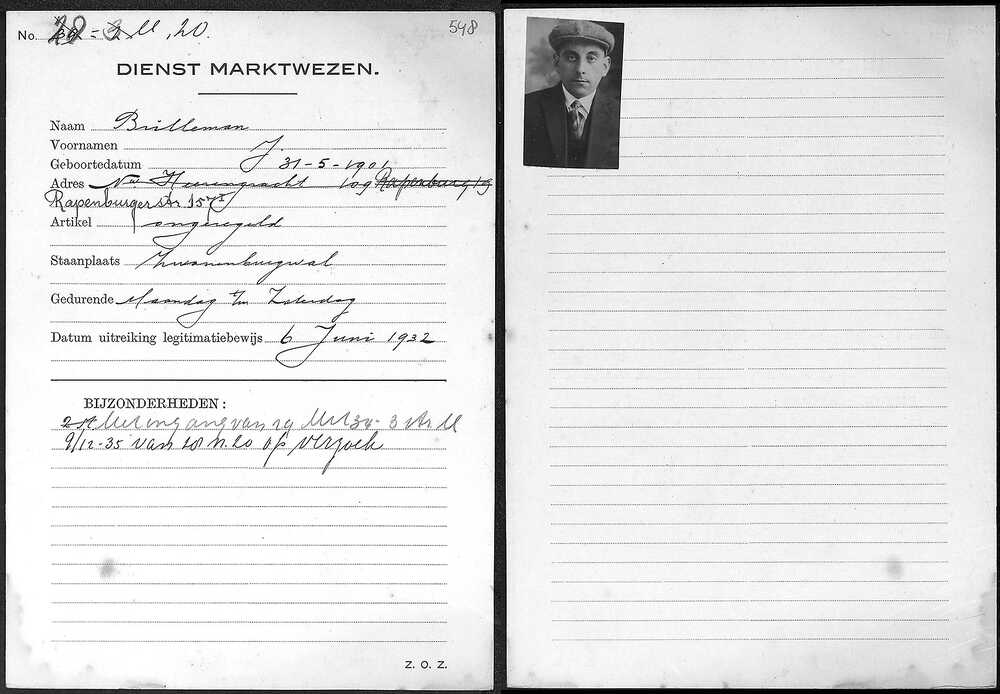 No. 20 - 3 M, 20. 598
DIENST MARKTWEZEN.
Naam Brilleman
Voornamen J.
Geboortedatum 31-5-1901
Adres Nwe Heerengracht 109 Rapenburg 19
Rapenburgerstr 157 I
Artikel ongeregeld
Staanplaats Zwanenburgwal
Gedurende Maandag t/m Zaterdag
Datum uitreiking legitimatiebewijs 6 Juni 1932
BIJZONDERHEDEN:
Met ingang van 19 34 - 3 M
9/12-35 van n. 20 op verzoek
Z. O. Z.